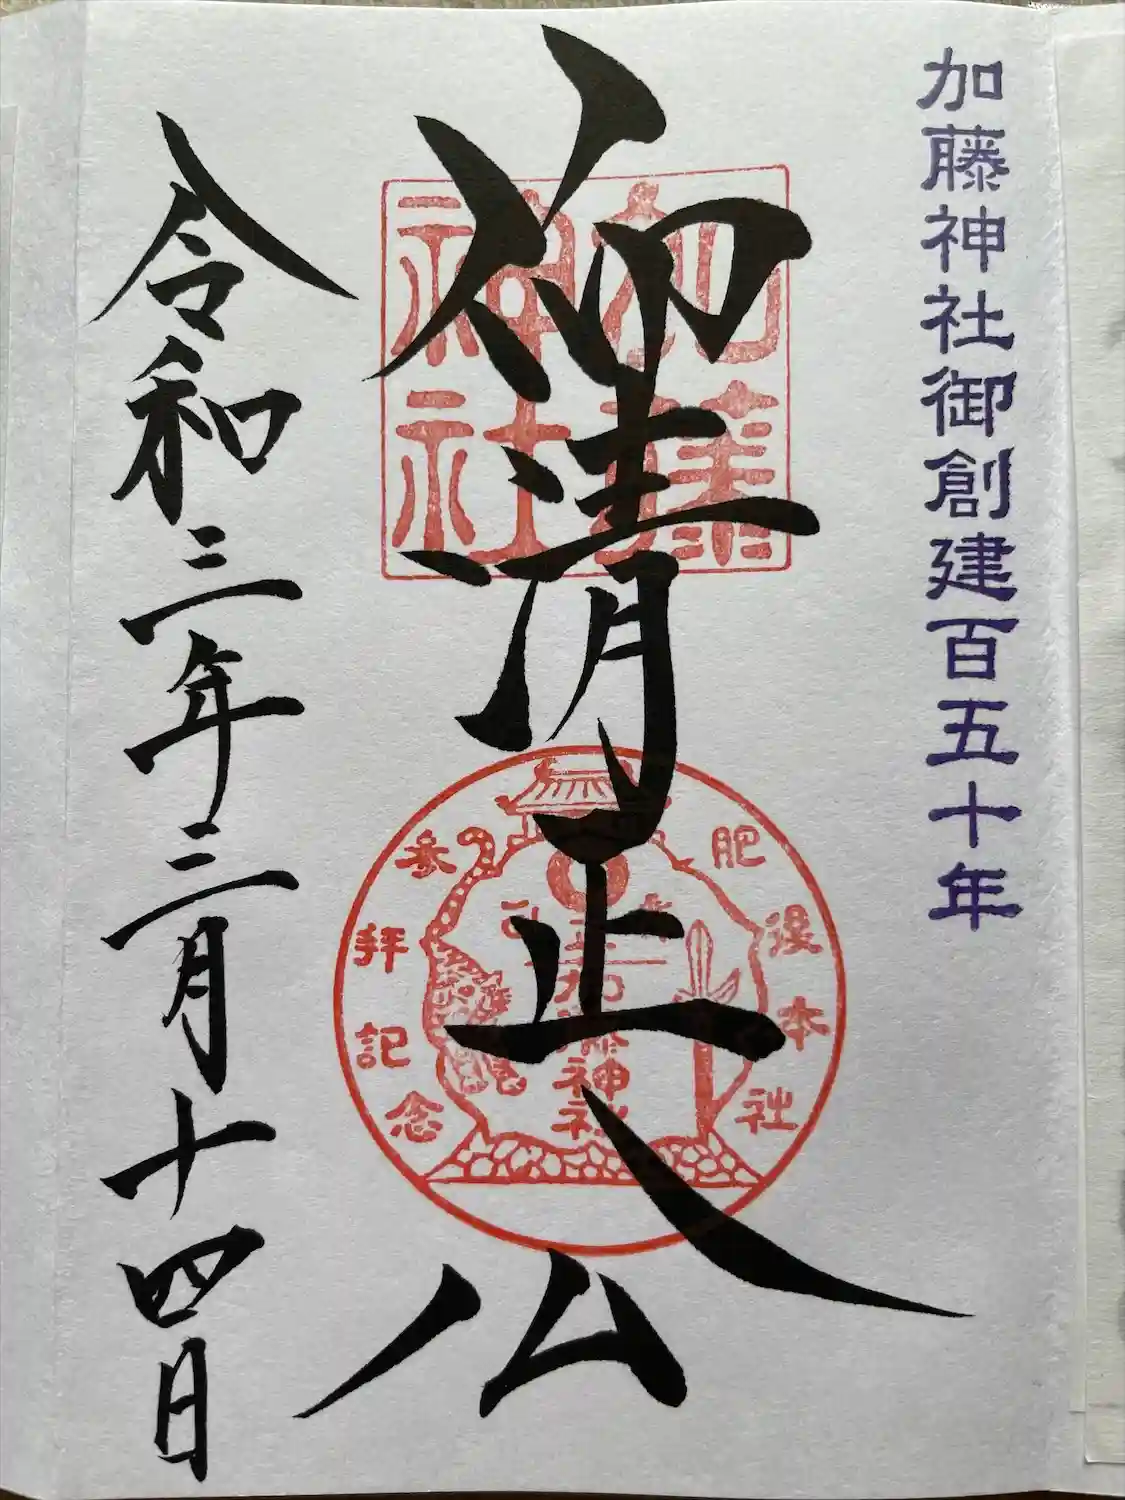 加藤神社御創建百五十年
仰清正公
加藤
神社
肥後本社
加藤神社
参拝記念
令和三年三月十四日